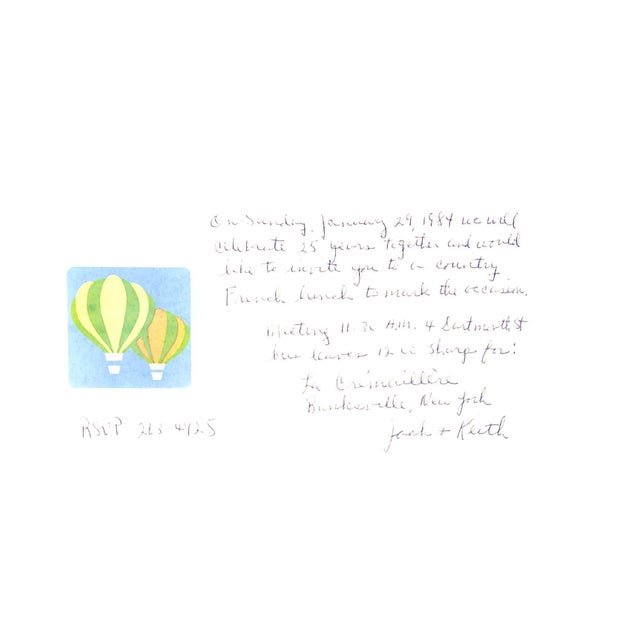 On Sunday, January 29, 1984 we will
celebrate 25 years together and would
like to invite you to a country
French lunch to mark the occasion.
Meeting 11:30 A.M. 4 Dartmouth St
bus leaves 12:00 sharp for:
La Crémaillère
Banksville, New York
Jack + Keith
RSVP 263-4425